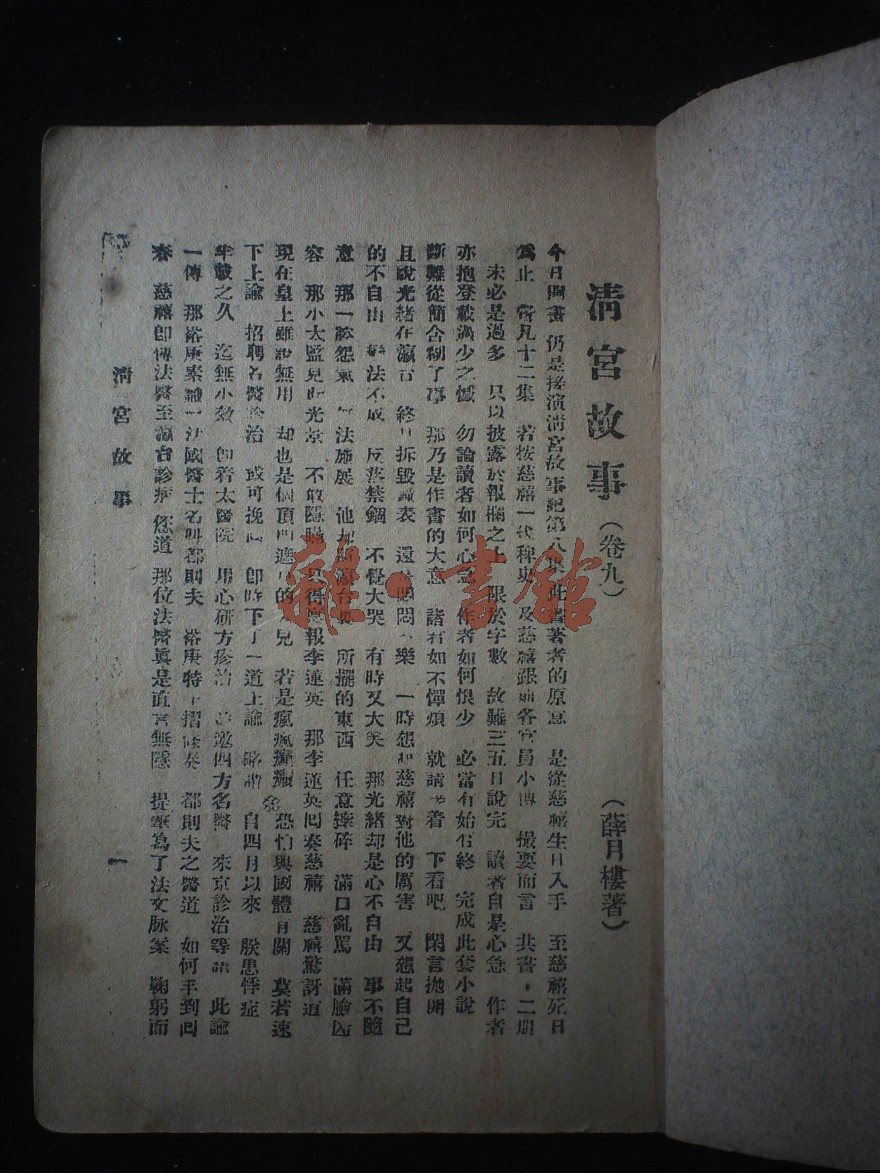 清宮故事（卷九）
（薛月樓著）
今日開書 仍是接演清宮故事紀第八集 此書著者的原意 是從慈禧生日入手 至慈禧死日
爲止 當凡十二集 若按慈禧一代稗史 及慈禧跟前各官員小傳 撮要而言 共書 二册
未必是過多 只以披露於報欄之 限於字數 故難三五日說完 讀者自是心急 作者
亦抱登載過少之憾 勿論讀者如何心急 作者如何恨少 必當有始有終 完成此套小說
斷難從簡含糊了事 那乃是作書的大意 諸君如不憚煩 就請 着 下看吧 閑言拋開
且說光緒在瀛台 終日拆毀鐘表 還是悶悶不樂 一時想起慈禧對他的厲害 又想起自己
的不自由 變法不成 反落禁錮 不覺大哭 有時又大笑 那光緒却是心不自由 事不隨
意 那一腔怨氣 無法施展 他却將瀛台裏 所擺的東西 任意摔碎 滿口亂罵 滿臉凶
容 那小太監見此光景 不敢隱瞞 只得稟報李蓮英 那李蓮英回奏慈禧 慈禧驚訝道
現在皇上雖說無用 却也是個頂門 的 兒 若是瘋瘋癲癲 恐怕與國體有關 莫若速
下上諭 招聘名醫診治 或可挽回 卽時下了一道上諭 略謂 自四月以來 朕患悸症
半載之久 迄無小效 卽着太醫院 用心研方疹治 並邀四方名醫 來京診治等語 此諭
一傳 那裕庚素識一法國醫士名叫都則夫 裕庚特上摺保奏 都則夫之醫道 如何手到回
春 慈禧卽傳法醫至瀛台診病 您道 那位法醫眞是直言無隱 提筆爲了法文脉案 鞠躬而
清宮故事
一
雜·書館